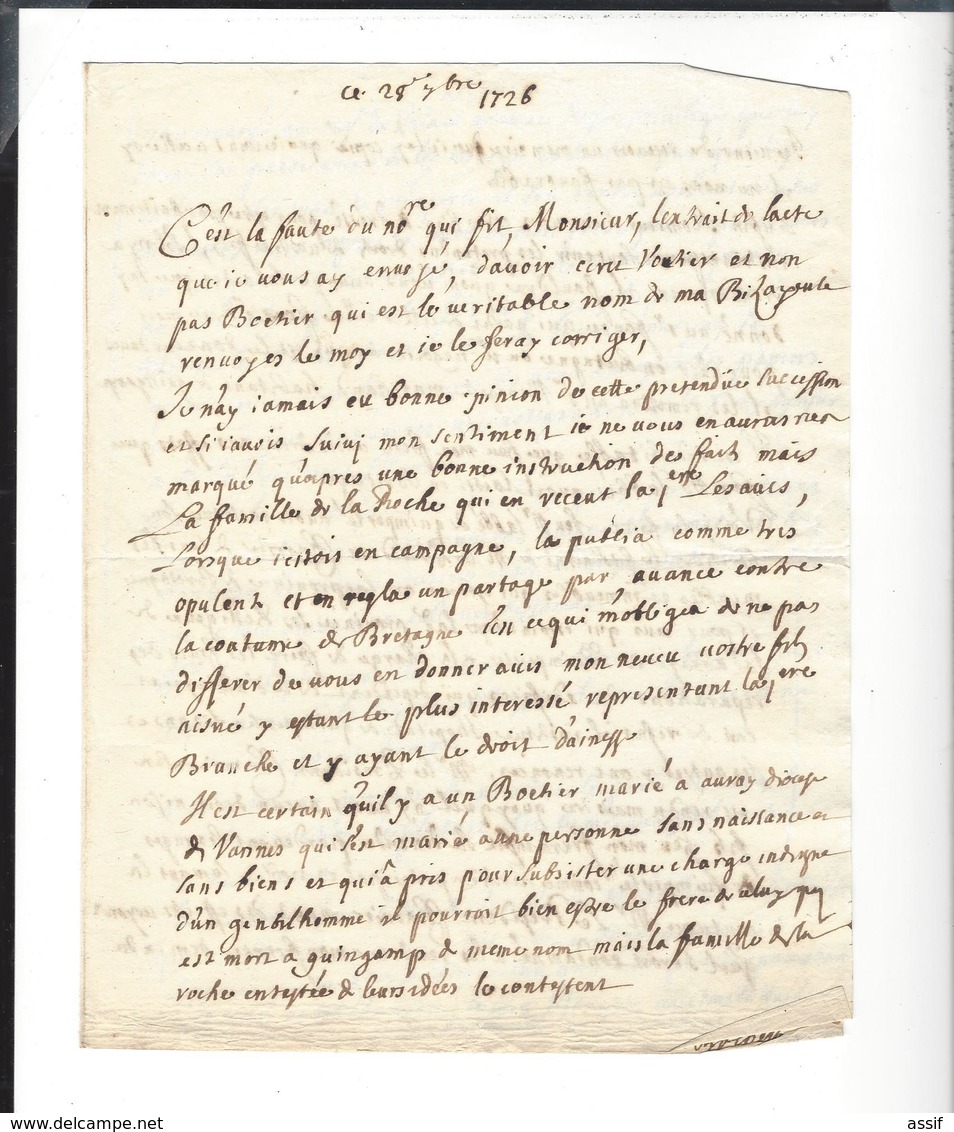 ce 28e 7bre 1726
C'est la faute du nore qui fit, Monsieur, lextrait de lacte
que ie vous ay envoyé, d'avoir ecrit Voetier et non
pas Boetier qui est le veritable nom de ma Bizayeule
renvoyes le moy et ie le feray corriger,
Je n'ay iamais eu bonne opinion de cette pretendüe succession
et si iavois suivj mon sentiment ie ne vous en aurois rien
marqué qu'apres une bonne instruction des faits mais
La famille de la Roche qui en receut la 1ere Les avis,
Lorsque i'estois en campagne, la publia comme tres
opulente et en regla un partage par avance contre
la coutume de Bretagne C'est ce qui m'obligea de ne pas
differer de vous en donner avis mon neveu vostre fils
aisné y estant le plus interessé representant la 1ere
Branche et y ayant le droit d'ainesse
Il est certain qu'il y a un Boetier marié a auray diocese
de Vannes qui s'est marié a une personne sans naissance et
sans biens et qui a pris pour subsister une charge indigne
d'un gentilhomme il pourroit bien estre le frere de celuy qui
est mort a guingamp de meme nom mais la famille de la
roche entestée de leurs idées le contestent
assif